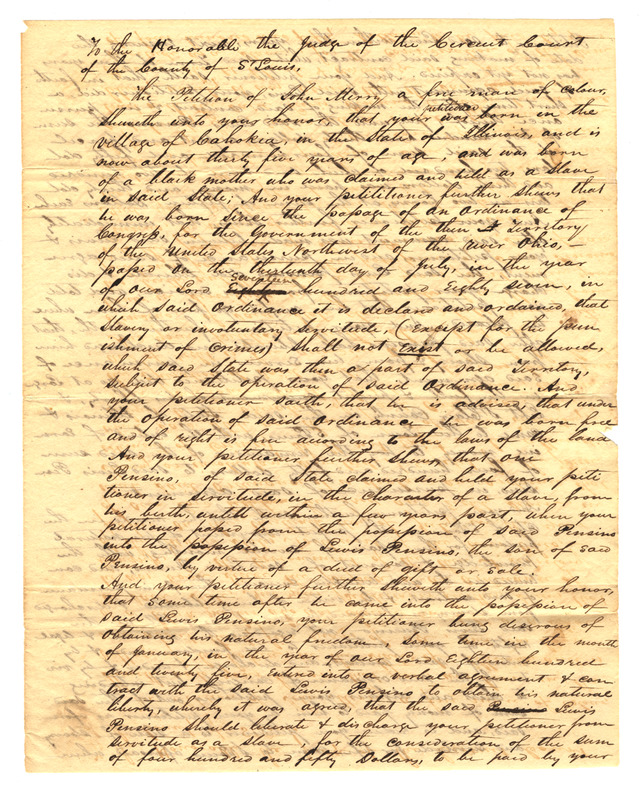 To the Honorable the Judge of the Circuit Court
of the County of St Louis,
The Petition of John Merry a free man of colour,
sheweth unto your honor, that your petitioner was born in the
village of Cahokia, in the State of Illinois, and is
now about thirty five years of age, and was born
of a black mother who was claimed and held as a Slave
in said State; And your petitioner further shews that
he was born since the passage of an Ordinance of
Congress, for the Government of the then Territory
of the United States Northwest of the river Ohio, –
passed on the thirteenth day of July, in the year
of our Lord Seventeen hundred and Eighty seven, in
which said Ordinance it is declared and ordained, that
Slavery or involuntary Servitude, (except for the pun
ishment of Crimes) shall not exist or be allowed,
which said State was then a part of said Territory,
subject to the operation of said Ordinance. And
your petitioner saith, that he is advised, that under
the operation of said Ordinance he was born free
and of right is free according to the laws of the land
And your petitioner further shews, that one
Pensino, of said State claimed and held your peti
tioner in servitude, in the Character of a slave, from
his birth, until within a few years past, when your
petitioner passed from the possession of said Pensino
into the possession of Lewis Pensino, the son of said
Pensino, by virtue of a deed of gift or sale.
And your petitioner further sheweth unto your honor,
that some time after he came into the possession of
said Lewis Pensino, your petitioner being desirous of
obtaining his natural freedom, some time in the month
of January, in the year of our Lord Eighteen hundred
and twenty five, entered into a verbal agreement & con
tract with the said Lewis Pensino to obtain his natural
liberty, whereby it was agreed, that the said Lewis
Pensino should liberate & discharge your petitioner from
servitude as a slave, for the consideration of the sum
of four hundred and fifty Dollars, to be paid by your